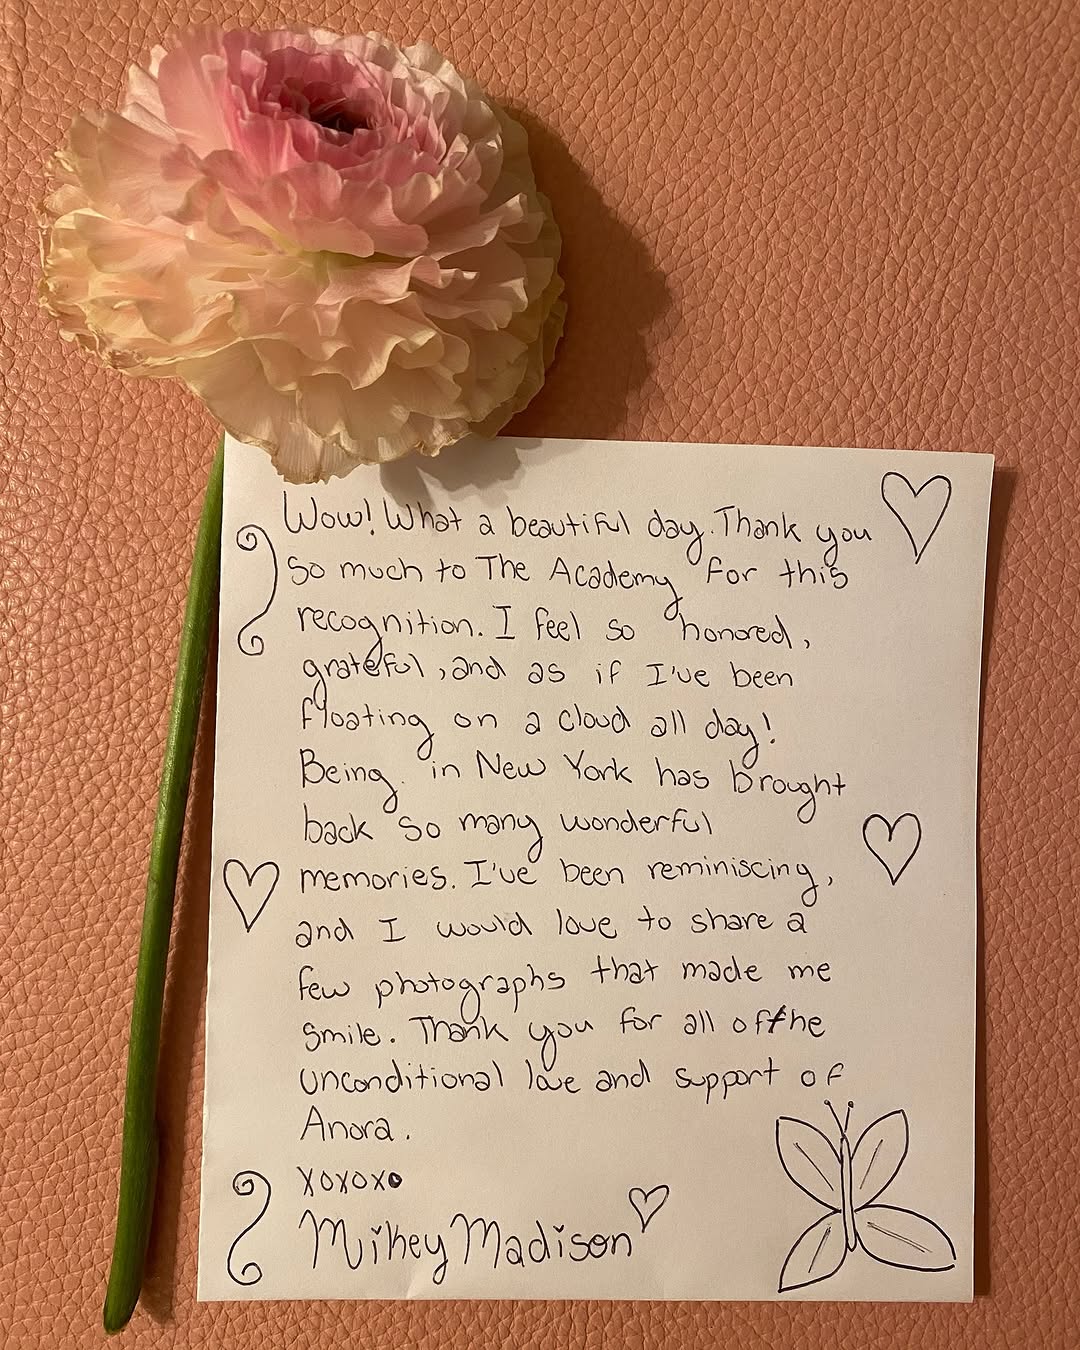 Wow! What a beautiful day. Thank you
so much to The Academy for this
recognition. I feel so honored,
grateful, and as if I've been
floating on a cloud all day!
Being in New York has brought
back so many wonderful
memories. I've been reminiscing,
and I would love to share a
few photographs that made me
smile. Thank you for all of the
unconditional love and support of
Anora.
xoxoxo
Mikey Madison